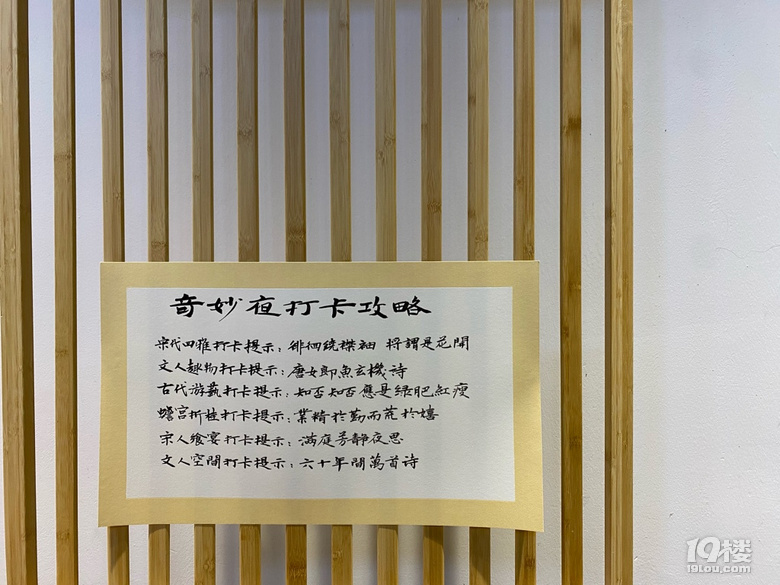 奇妙夜打卡攻略
宋代四雅打卡提示：徘徊绕襟袖 将謂是花開
文人趣物打卡提示：唐女郎魚玄機詩
古代游藝打卡提示：知否知否應是绿肥紅瘦
蟾宫折桂打卡提示：業精於勤而荒於嬉
宗人飨宴打卡提示：滿庭芳静夜思
文人空間打卡提示：六十年間萬首诗
19楼
19lou.com